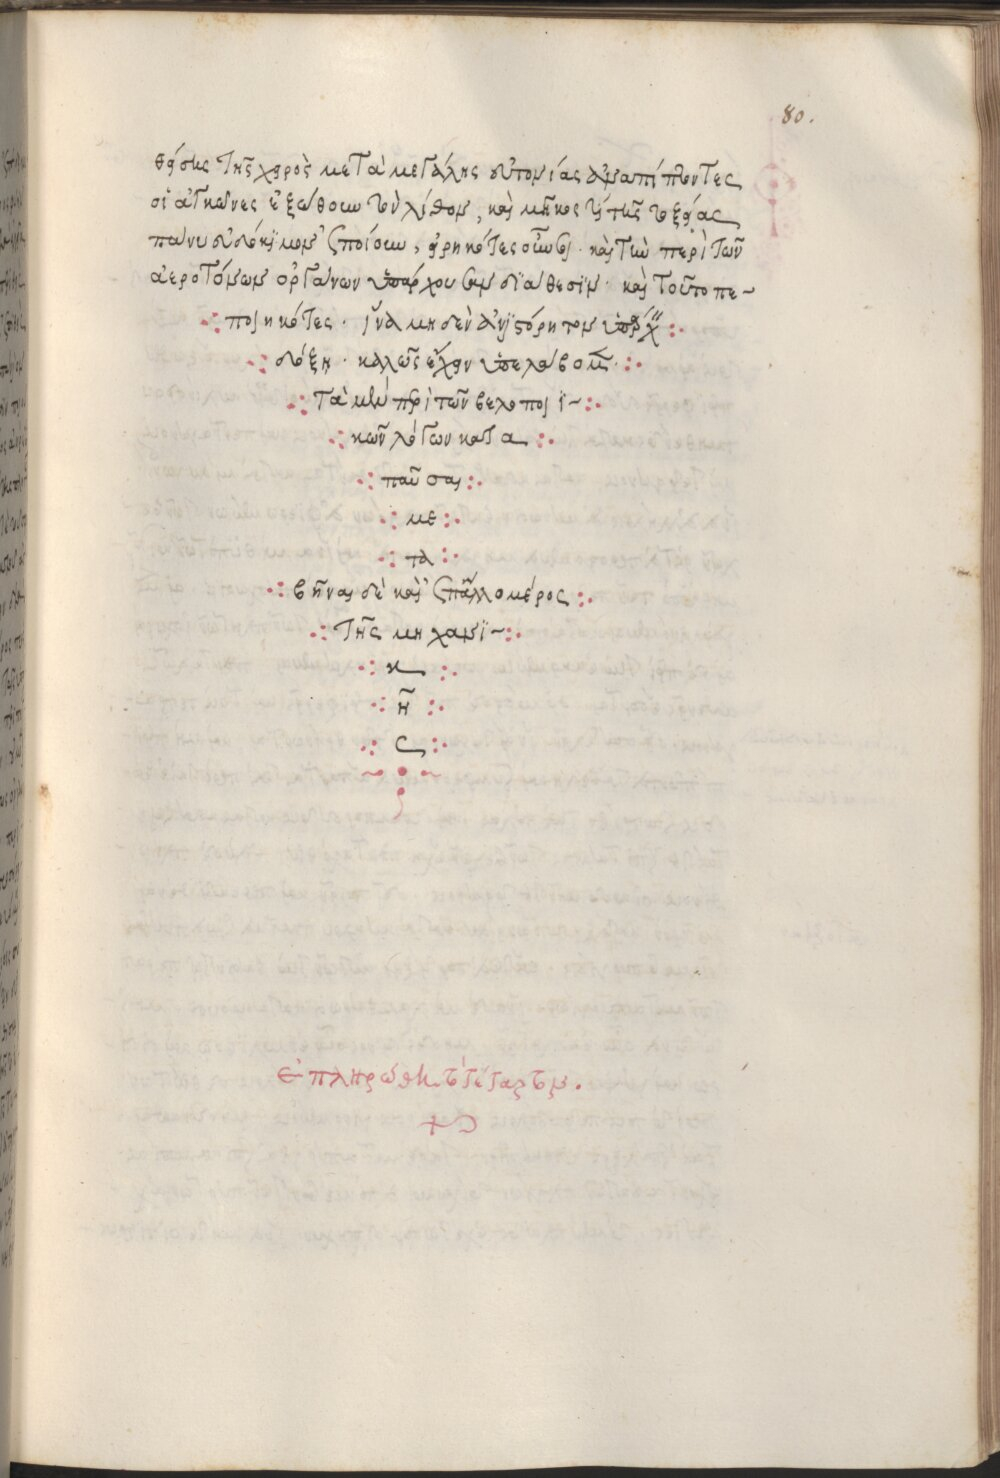 80.
θείσης τῆς χειρὸς μετὰ μεγάλης εὐτονίας ἀναπίπτοντες
οἱ ἀγκῶνες ἐξώθουν τὸν λίθον, καὶ μῆκος τι τῆς τοξείας
πάνυ εὐδόκιμον ἐποίουν, εἰρηκότες οὖν σοι. καὶ τὴν περὶ τῶν
ἀεροτόνων ὀργάνων ὑπάρχουσαν διάθεσιν. καὶ τοῦτο πε-
ποιηκότες. ἵνα μηδὲν ἀνιστόρητον ὑπάρχειν
δόξη. καλῶς ἔχειν ὑπελάβομεν.
τὰ μὲν περὶ τῶν βελοποιϊ-
κῶν λόγων κατα
παῦσαι
με
τα
βῆναι δὲ καὶ ἐπ' ἄλλο μέρος
τῆς μηχανϊ-
κ
ῆ
ς
ἐπληρώθη τὸ τέταρτον.